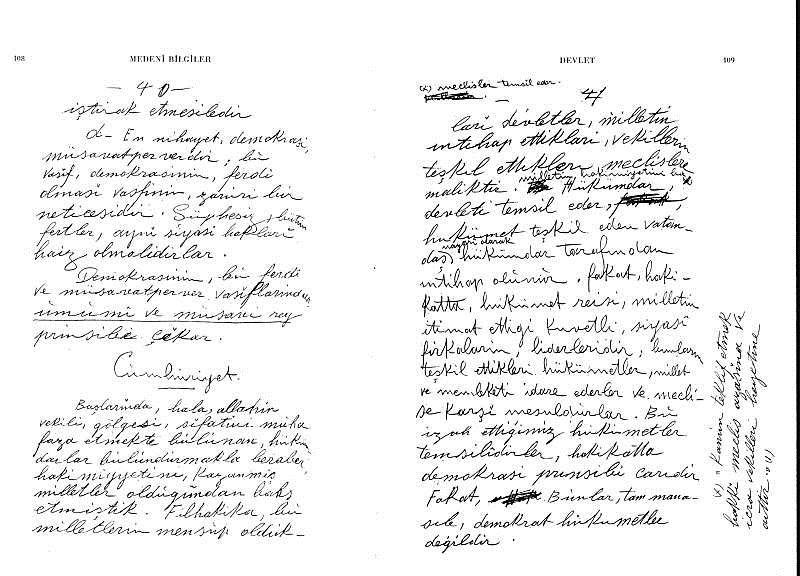 108
MEDENİ BİLGİLER
— 40 —
iştirak etmesiledir
d- En nihayet, demokrasi,
müsavatperverdir; bu
vasıf, demokrasinin, ferdi
olması vasfının, zaruri bir
neticesidir. Şüphesiz, bütün
fertler, aynı siyasi hakları
haiz olmalıdırlar.
Demokrasinin, bu ferdi
ve müsavatperver vasıflarından
umumi ve müsavi rey
prinsibi çıkar.
Cumhuriyet.
Başlarında, hala, allahın
vekili, gölgesi, sıfatını muha
faza etmekte bulunan, hüküm
darlar bulundurmakla beraber,
hakimiyetini, kazanmış
milletler olduğundan bahs
etmiştik. Filhakika, bu
milletlerin mensup olduk-
DEVLET
109
(x) meclisler temsil eder.
41
ları devletler, milletin
intihap ettikleri, vekillerin
teşkil ettikleri, meclislere
maliktir. Hükümdar,
milletin hakimiyetini bu x
devleti temsil eder,
hukümet teşkil eden vatan-
daş, hükümdar tarafından
nazari olarak
intihap olunur. Fakat, haki-
katta, hükümet reisi, milletin
itimat ettiği kuvetli, siyasi
fırkaların, liderleridir, bunların
teşkil ettikleri hükümetler, millet
ve memleketi idare ederler ve mecli-
se karşı mesuldurlar. Bu
izah ettiğimiz hükümetler
temsilidirler, hakikatta
demokrasi prensibi caridir
Fakat, Bunlar, tam mana-
sile, demokrat hükumetler
değildir.
x) "Kanun teklif etmek
hakkı meclis azasına ve
icra vekilleri heyetine
aittir." (1)